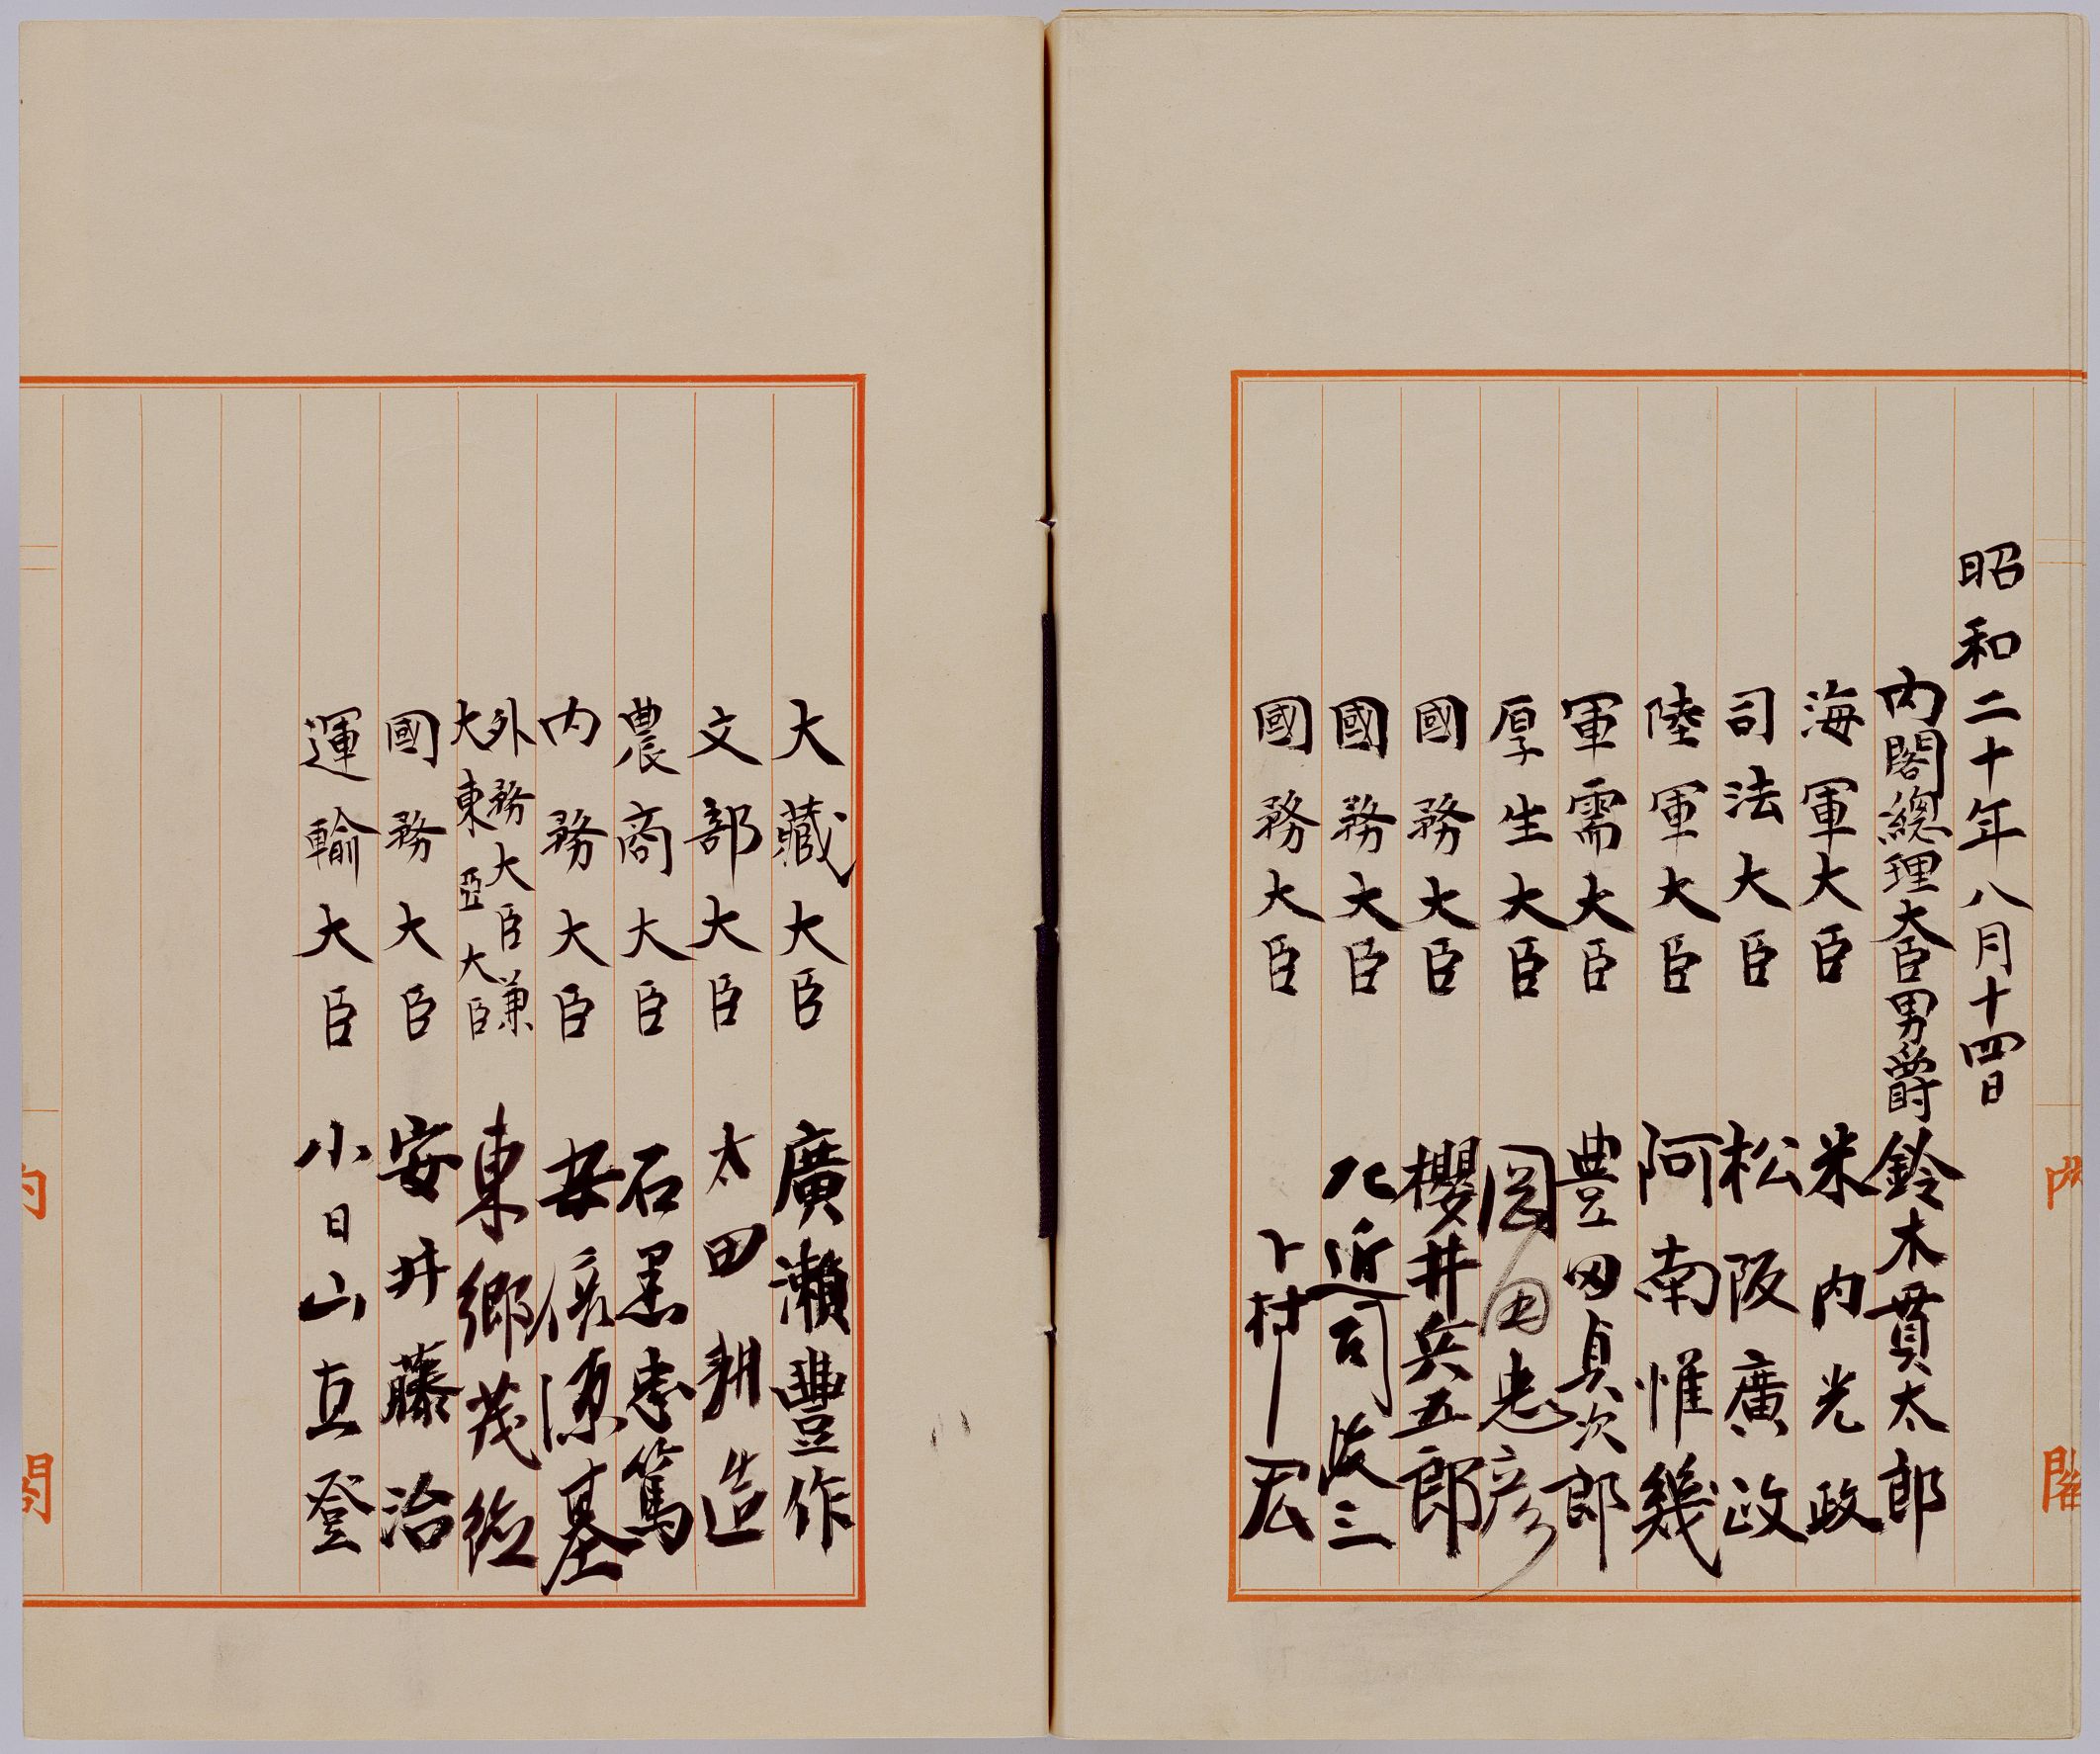 昭和二十年八月十四日
内閣總理大臣男爵鈴木貫太郎
海軍大臣 米内光政
司法大臣 松阪廣政
陸軍大臣 阿南惟幾
軍需大臣 豊田貞次郎
厚生大臣 岡田忠彦
國務大臣 櫻井兵五郎
國務大臣 左近司政三
國務大臣 下村宏
大藏大臣 廣瀨豐作
文部大臣 太田耕造
農商大臣 石黒忠篤
内務大臣 安倍源基
外務大臣兼
大東亞大臣 東郷茂徳
國務大臣 安井藤治
運輸大臣 小日山直登
内閣
内閣